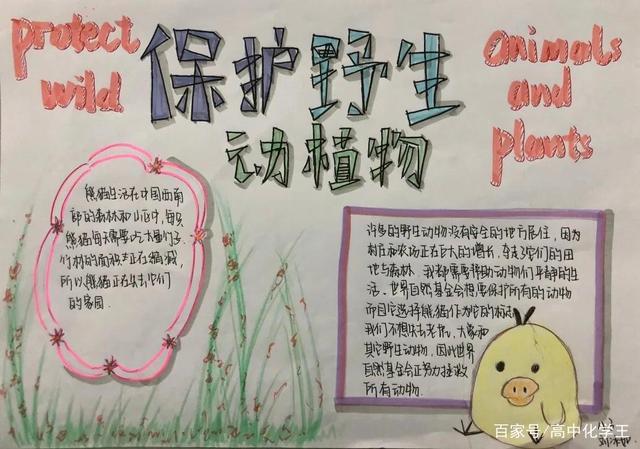 protect
wild
保护野生
动植物
animals
and
plants
熊猫生活在中国西南
部的森林和山区中,每只
熊猫每天需要吃大量竹子.
竹林的面积正在缩减,
所以熊猫正在失去它们
的家园.
许多的野生动物没有安全的地方居住,因为
村庄和农场正在巨大的增长,夺走了它们的田
地与森林.我都需要帮助动物们平静的生
活.世界自然基金会想要保护所有的动物
而且它选择熊猫作为它的标志
我们不想失去老虎、大象和
其它野生动物,因此世界
自然基金会正努力拯救
所有动物.
百家号/高中化学王